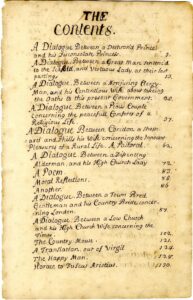 THE
Contents.
A Dialogue Between a Dethron'd Prince
and his Inconsolate Princess. 2.
A Dialogue Between a Great man sentenc'd
to the Scaffold, and Virtuous Lady, at their last
parting. 15.
A Dialogue Between a Nonjuring Clergy-
man, and his Contentious Wife, about taking
the Oaths to this present Government.
A Dialogue Between a Pious Couple
Concerning the peacefull Comforts of a
Religious Life.
A Dialogue Between Corydon, a
and Phillis his Wife, concerning the innocent
Pleasures of a Rural Life. A Pastoral. 62.
A Dialogue Between a Desponding
Alderman, and his High Church Lady 72.
A Poem 83.
Moral Reflections. 85.
Another. 86.
A Dialogue Between a Town Bred
Gentleman and his Country Bride, concer-
ning London. 87.
A Dialogue Between a Low Church
and his High Church Wife, concerning the
Times.
The Country Mouse.
A Translation, out of Virgil 124.
The Happy Man. 128.
Horace to Fuscus Aristius. 130.